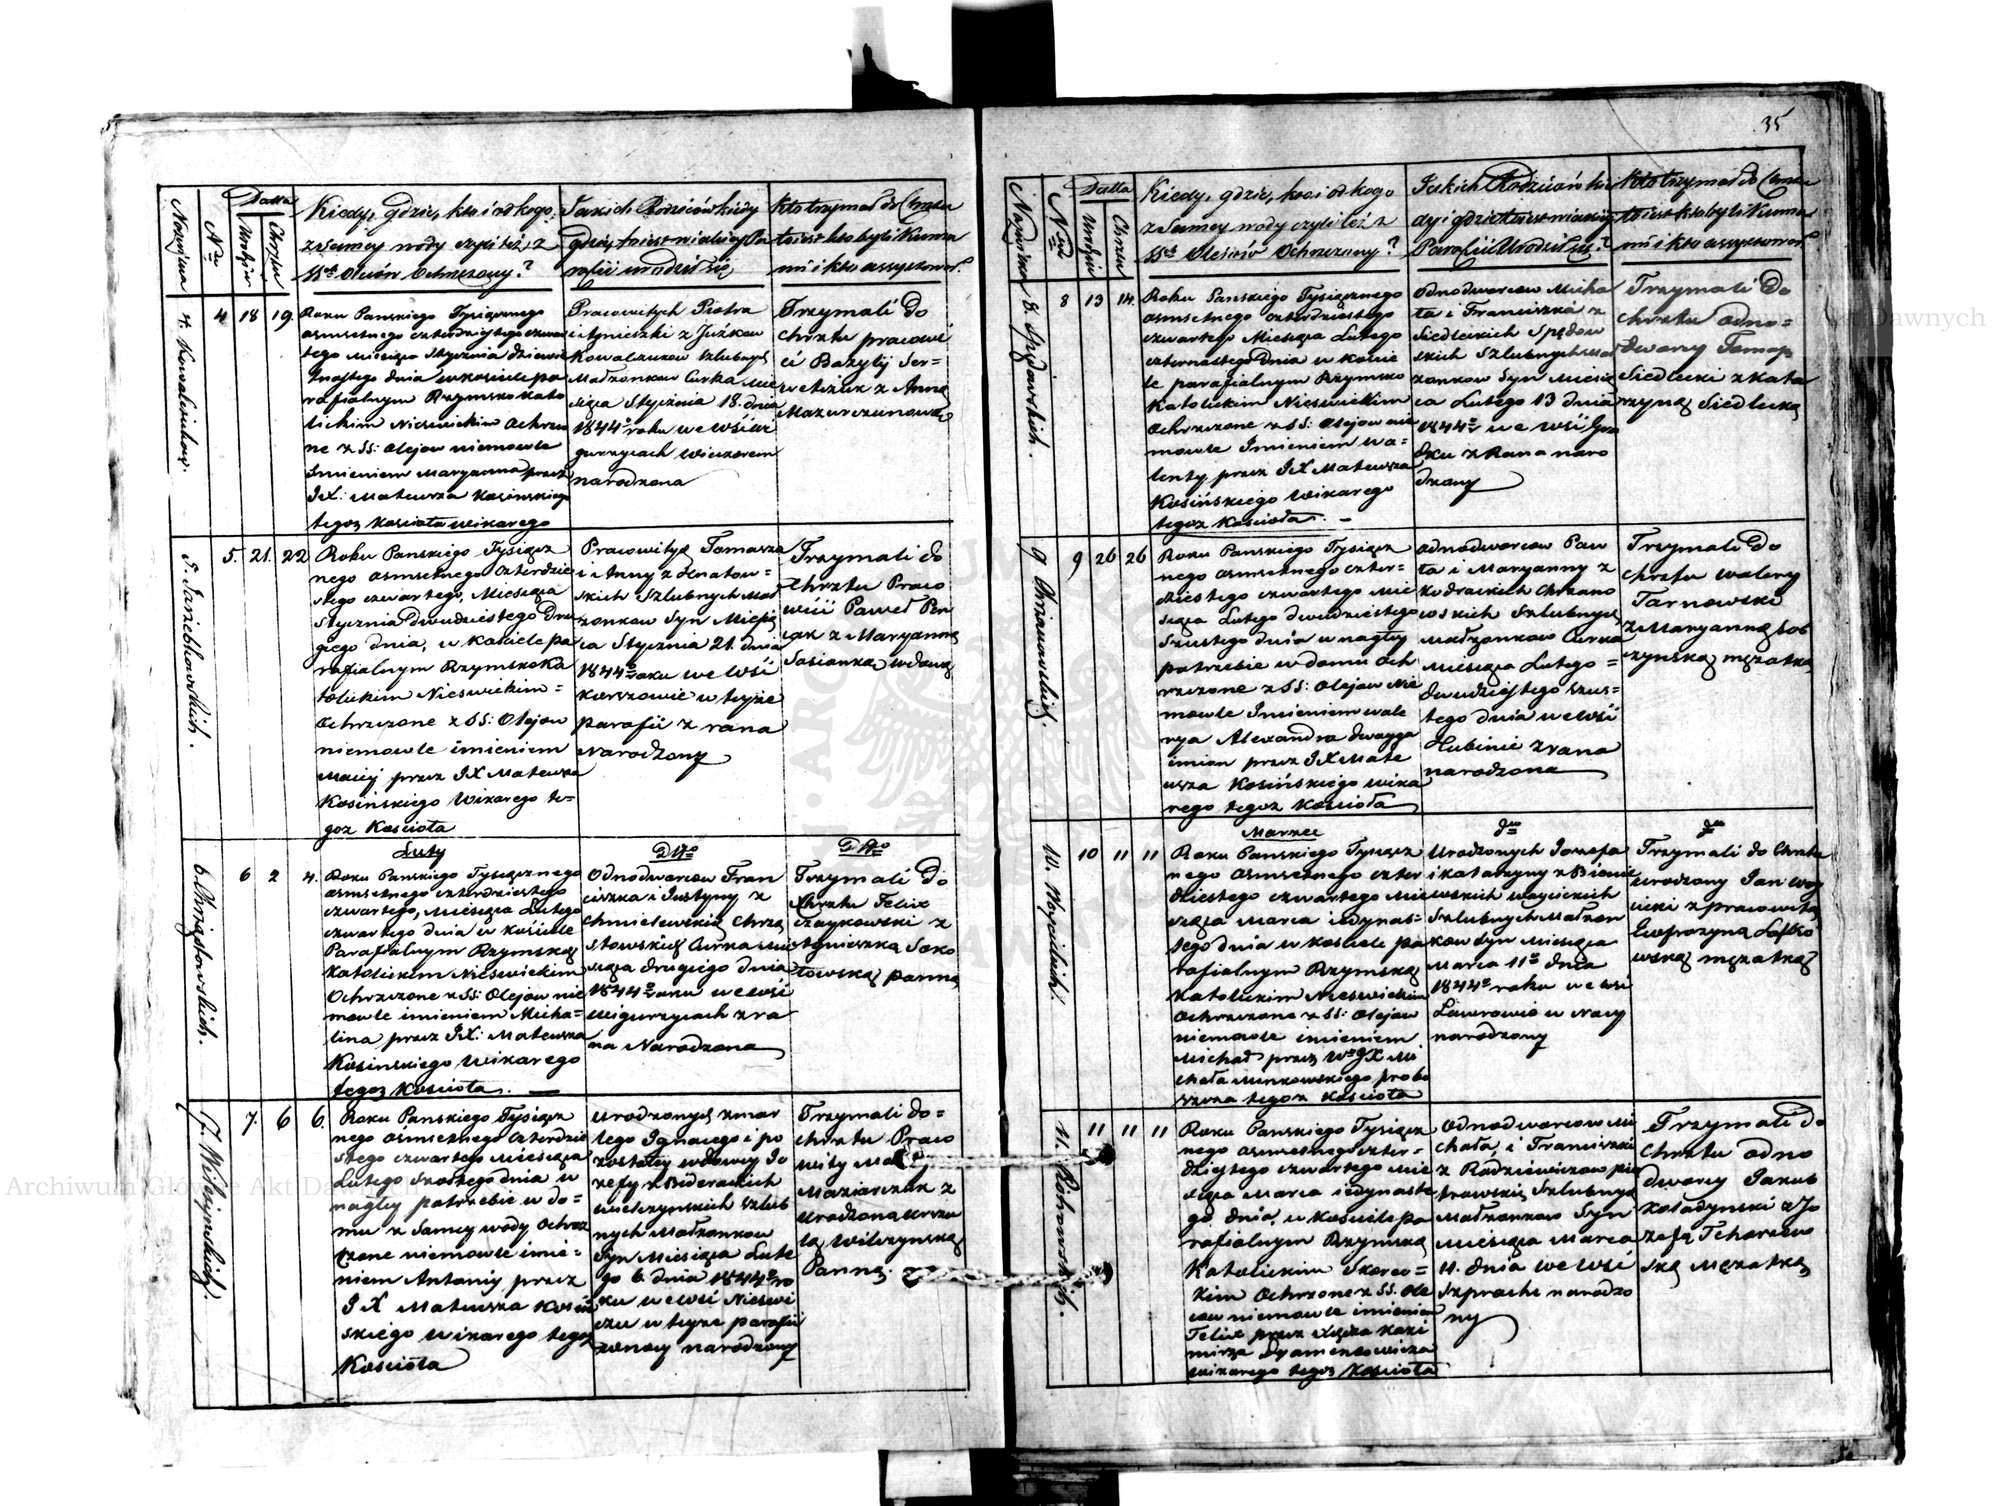 35
Datta
Nazwiska
Nro
Urodzin
Chrztu
Kiedy, gdzie, kto i od kogo
z samey wody czyli też z
SStch Olejów Ochrzczony?
Jakich Rodziców kiedy
gdzie, to iest w iakiey Pa
rafii urodził się
Kto trzymał do Chrztu
to iest kto byli Kuma
mi i kto assystował?
4. Kowalczukow.
4 18 19
Roku Panskiego Tysiącznego
osmsetnego czterdziestego czwar
tego Miesiąca Stycznia dziewię
tnastego dnia w kosciele pa
rafialnym Rzymsko Kato
lickim Nieswickim Ochrzczo
ne z SS: Olejow niemowle
Imieniem Maryanna przez
JX: Mateusza Kosinskiego
tegoż Kościoła wikarego
Pracowitych Piotra
i Agnieszki z Juzkow
Kowalczukow szlubnych
Małżonkow Curka Mie
siąca Stycznia 18. dnia
1844º roku we Wsi
gurzycach wieczorem
narodzona
Trzymali do
chrztu pracowi
ci Bazyly Ser=
wetszuk z Anną
Mazurczunową
5. Jarzebkowskich.
5. 21. 22
Roku Panskiego Tysiącz
nego osmsetnego czterdzie
stego czwartego, Miesiąca
Stycznia Dwudziestego Dru
giego dnia, w Kosciele pa
rafialnym Rzymsko Ka
tolickim Nieswickim=
Ochrzczone z SS: Olejow
niemowle imieniem
Maciej przez JX Mateusza
Kosińskiego Wikarego te=
goz Kosciola
Pracowitych Tomasza
i Anny z Hnatow=
skich Szlubnych Mał
zonkow Syn Miesią
ca Stycznia 21. dnia
1844º roku we Wsi
w teyze
parafii z rana
Narodzony
Trzymali do
Chrztu Praco
wici Paweł
z Maryanną
wdową
6. Chrząstowskich.
6 2 4.
Luty
Roku Panskiego Tysiącznego
osmsetnego czterdziestego
czwartego, Miesiąca Lutego
czwartego dnia w kościele
Parafialnym Rzymsko
Katolickim Nieswickim
Ochrzczone z SS: Olejow nie
mowle imieniem Micha=
lina przez JX: Mateusza
Kosinskiego Wikarego
tegoz Kosciola. —
Ditto
Odnodworcow Fran
ciszka i Justyny z
Chmielewskich Chrzą
stowskich Curka Mie
siąca drugiego dnia
1844º roku we wsi
Wigurzycach z ra
na Narodzona
Ditto
Trzymali do
Chrztu Felix
Czaykowski z
Agnieszką Soko
łowską panną
7. Wilczynskich.
7. 6 6.
Roku Panskiego Tysiącz
nego osmsetnego czterdzie
stego czwartego Miesiąca
Lutego szostego dnia w
nagłey potrzebie w do=
mu z samey wody Ochrz
czone niemowle imie=
niem Antoniy przez
JX Mateusza Kosiń
skiego wikarego tegoż
Kościoła
Urodzonych zmar
lego Ignacego i po
zostałey wdowey Jo
zefy z
Wilczynskich szlub
nych Małżonkow
Syn Miesiąca Lute
go 6. dnia 1844º ro
ku we wsi Nieswi
czu w teyze parafii
narodzony
Trzymali do=
chrztu Praco
wity
Maziarczuk z
Urodzoną Urszu
lą Wilczynską
Panną.
Datta
Nazwiska
Nro
Urodzin
Chrztu
Kiedy, gdzie, kto i od kogo
z samey wody czyli też z
SStch Olejów Ochrzczony?
Jakich Rodziców kie
dy i gdzie to iest w iakiey
Parafii Urodził się?
Kto trzymał do Chrztu
to iest kto byli Kuma
mi i kto assystował
8.
8 13 14.
Roku Panskiego Tysiącznego
osmsetnego czterdziestego
czwartego Miesiąca Lutego
czternastego Dnia w Koście
le parafialnym Rzymsko
Katolickim Nieswickim
Ochrzczone z SS: Olejow nie
mowle Imieniem Wa=
lenty przez JX Mateusza
Kosińskiego Wikarego
tegoz Kosciola. —
Odnodworcow Micha
ła i Franciszki z
Siedleckich
skich Szlubnych Mał
zonkow Syn Miesią
ca Lutego 13 dnia
1844º r we Wsi
z Rana naro
dzony
Trzymali do
chrztu odno=
dworcy Tomasz
Siedlecki z Kata
rzyną Siedlecką
9 Chrzanowskich.
9 26 26
Roku Panskiego Tysiącz
nego osmsetnego czter=
dziestego czwartego Mie
siąca Lutego dwudziestego
szustego dnia w nagłey
potrzebie w domu Och
rzczone z SS: Olejow Nie
mowle Imieniem Wale
rya Alexandra dwoyga
imion przez JX Mate
usza Kosińskiego Wika
rego tegoz Kościoła
Odnodworcow Paw
ła i Maryanny z
Chrzano
wskich Szlubnych
Małżonkow Curka
Miesiąca Lutego=
dwudziestego szus=
tego dnia we wsi
Łubinie z rana
narodzona
Trzymali Do
chrztu Walery
Tarnowski
z Maryanną Sob
czynską męzatką
W. Woycickich.
10 11 11
Marzec
Roku Panskiego Tysiącz
nego osmsetnego czter
dziestego czwartego Mie
siąca Marca iedynas=
tego dnia w kosciele pa
rafialnym Rzymsko
Katolickim Nieswickim
Ochrzczone z SS: Olejow
niemowle imieniem
Michał przez WgoJX Mi
chała Minkowskiego probo
szcza tegoz Kościoła
Urodzonych Jozefa
i Katarzyny z
Woycickich
Szlubnych Małzon
kow Syn Miesiąca
Marca 11º dnia
1844º roku we wsi
Lawrowie w Nocy
narodzony
Trzymali do Chrztu
Urodzony Jan Woy
cicki z pracowitą
Eufrozyną
męzatką
11.
11 11 11
Roku Panskiego Tysiącz
nego osmsetnego czter=
dziestego czwartego Mie
siąca Marca iedynaste
go dnia, w Kosciele pa
rafialnym Rzymsko
Katolickim
Ochrzczone z SS. Ole
iow niemowle imieniem
Felix przez Xiędza Kazi
mirza
wikarego tegoz Kościoła
Odnodworcow Mi
chała, i Franciszki
z Radziewiczow
Szlubnych
Małzonkow Syn
Miesiąca Marca
11. dnia we Wsi
narodzo
ny
Trzymali do
Chrztu odno
dworcy Jakub
z Jo
zefą
Męzatką
Archiwum Główne Akt Dawnych